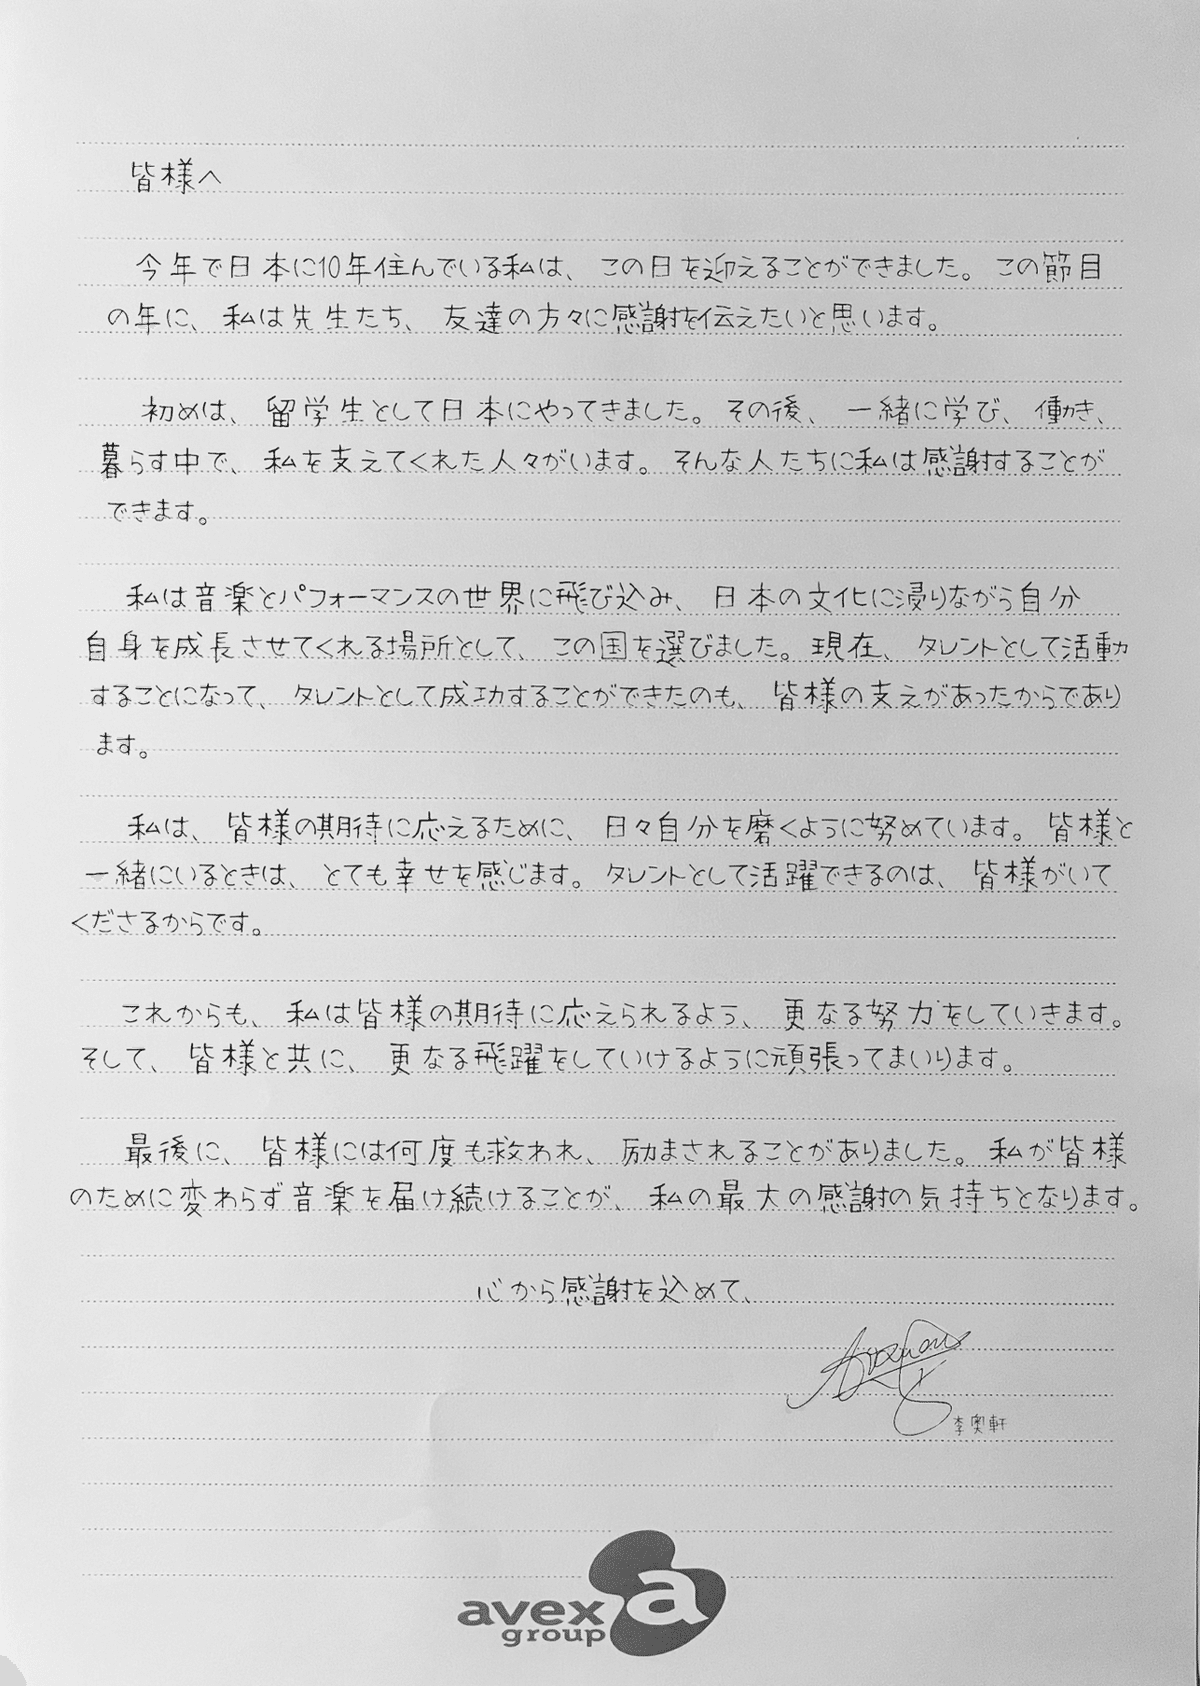 皆様へ
今年で日本に10年住んでいる私は、この日を迎えることができました。この節目
の年に、私は先生たち、友達の方々に感謝を伝えたいと思います。
初めは、留学生として日本にやってきました。その後、一緒に学び、働き、
暮らす中で、私を支えてくれた人々がいます。そんな人たちに私は感謝することが
できます。
私は音楽とパフォーマンスの世界に飛び込み、日本の文化に浸りながら自分
自身を成長させてくれる場所として、この国を選びました。現在、タレントとして活動
することになって、タレントとして成功することができたのも、皆様の支えがあったからであり
ます。
私は、皆様の期待に応えるために、日々自分を磨くように努めています。皆様と
一緒にいるときは、とても幸せを感じます。タレントとして活躍できるのは、皆様がいて
くださるからです。
これからも、私は皆様の期待に応えられるよう、更なる努力をしていきます。
そして、皆様と共に、更なる飛躍をしていけるように頑張ってまいります。
最後に、皆様には何度も救われ、励まされることがありました。私が皆様
のために変わらず音楽を届け続けることが、私の最大の感謝の気持ちとなります。
心から感謝を込めて、
李奥軒
avex
group
a